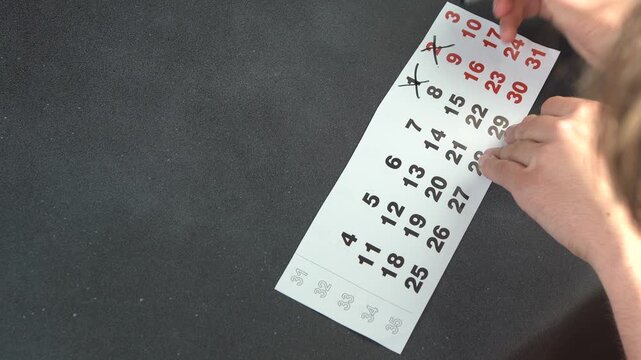 31 1 2 3
32 4 5 6 7 8 9 10
33 11 12 13 14 15 16 17
34 18 19 20 21 22 23 24
35 25 26 27 28 29 30 31